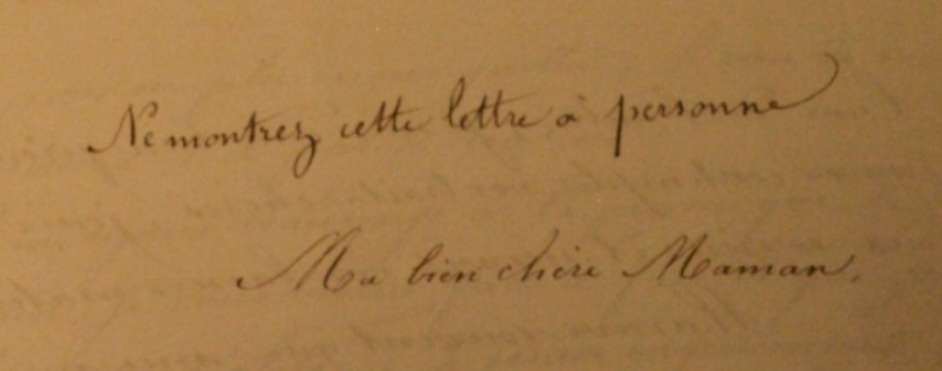 Ne montrez cette lettre à personne
Ma bien chère Maman,